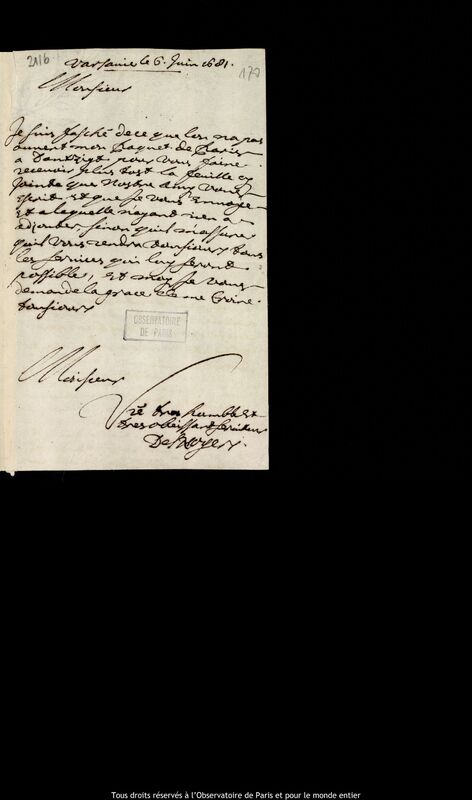 2116.
177
Varsavie le 6. Juin 1681.
Monsieur
Je suis fasché de ce que l'on na pas
ouvert mon paquet de Paris
a Dantzigt pour vous faire
recevoir plus tost la feuille cy
jointe que nostre amy vous
escrit et que je vous Envoye
Et a laquelle nayant rien a
adjouter sinon quil massure
quil vous rendra tousiours tous
les services qui luy seront
possible, Et moy je vous
demande la grace de me croire
tousiours
OBSERVATOIRE
DE PARIS
Monsieur
Vre tres humble Et
tres obeissant serviteur
Des Noyers.
Tous droits réservés à l'Observatoire de Paris et pour le monde entier